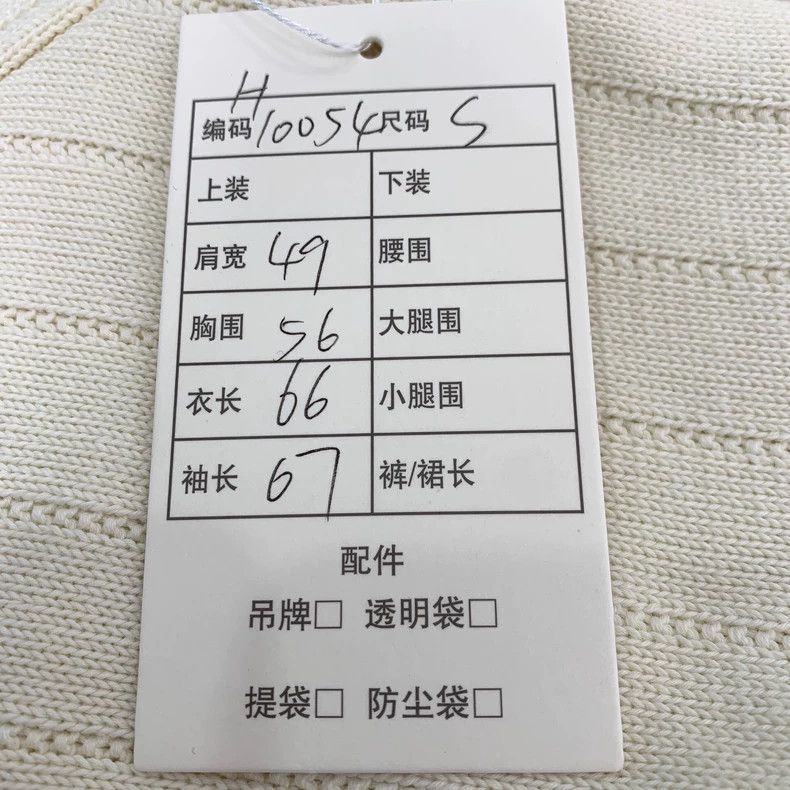 编码 H10054 尺码 S
上装 下装
肩宽 49 腰围
胸围 56 大腿围
衣长 66 小腿围
袖长 67 裤/裙长
配件
吊牌□ 透明袋□
提袋□ 防尘袋□